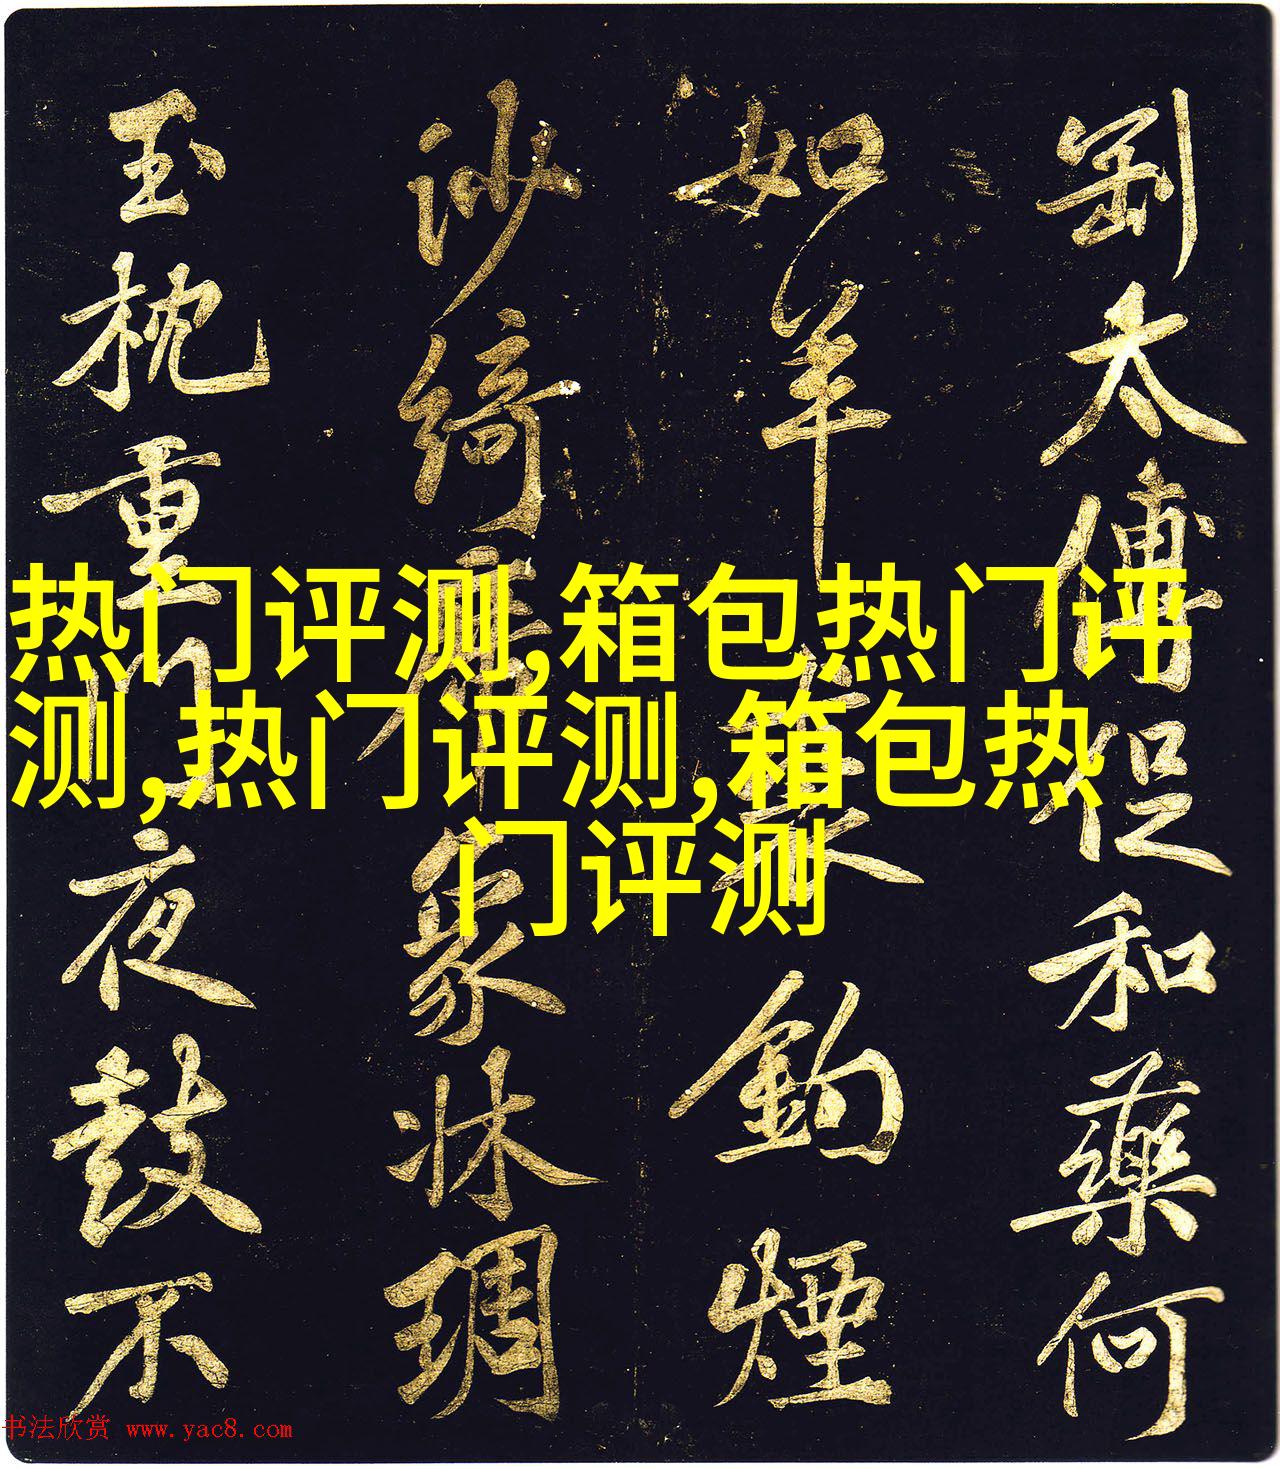 太傅促和藥何
如羊鉤煙
沙綺象牀琱
玉枕重門夜鼓不
热门评测,箱包热门评
测,热门评测,箱包热
门评测
书法欣赏 www.yac8.com